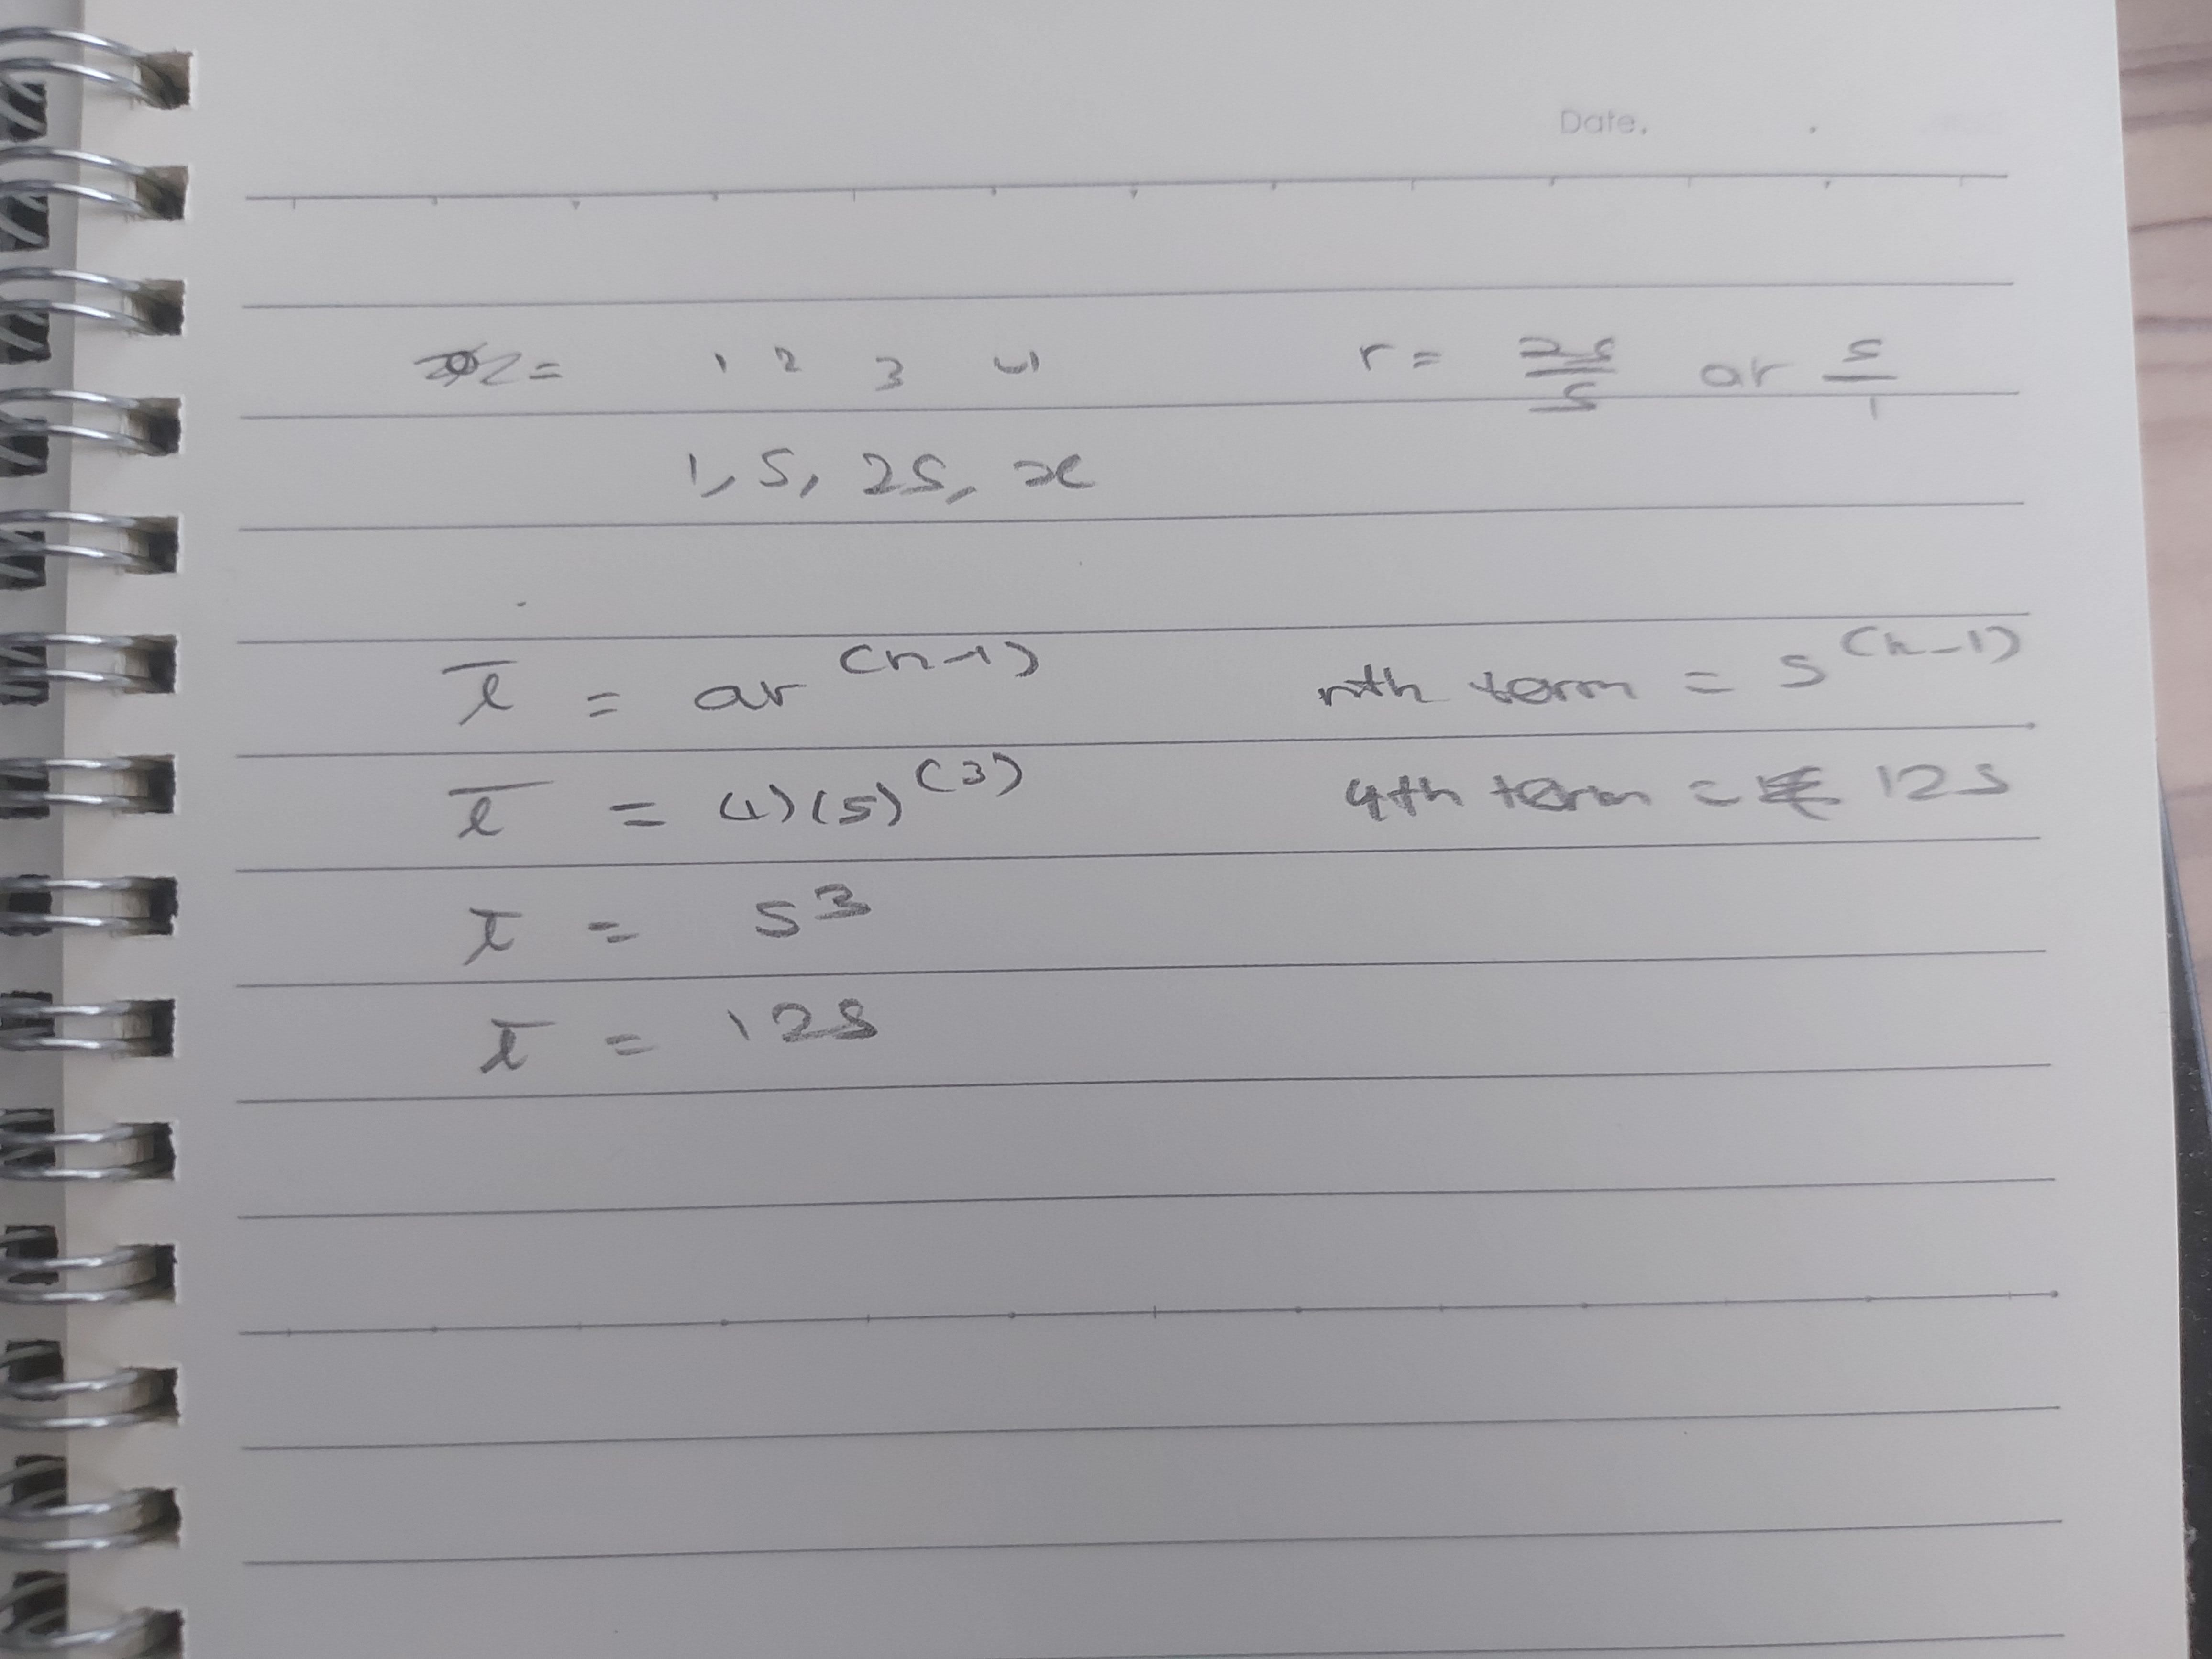 Date.
= 1 2 3 4 r = 25/5 or 5/1
1, 5, 25, x
T = ar^(n-1) nth term = 5^(n-1)
T = (1)(5)^(3) 4th term = 125
T = 5^3
T = 125